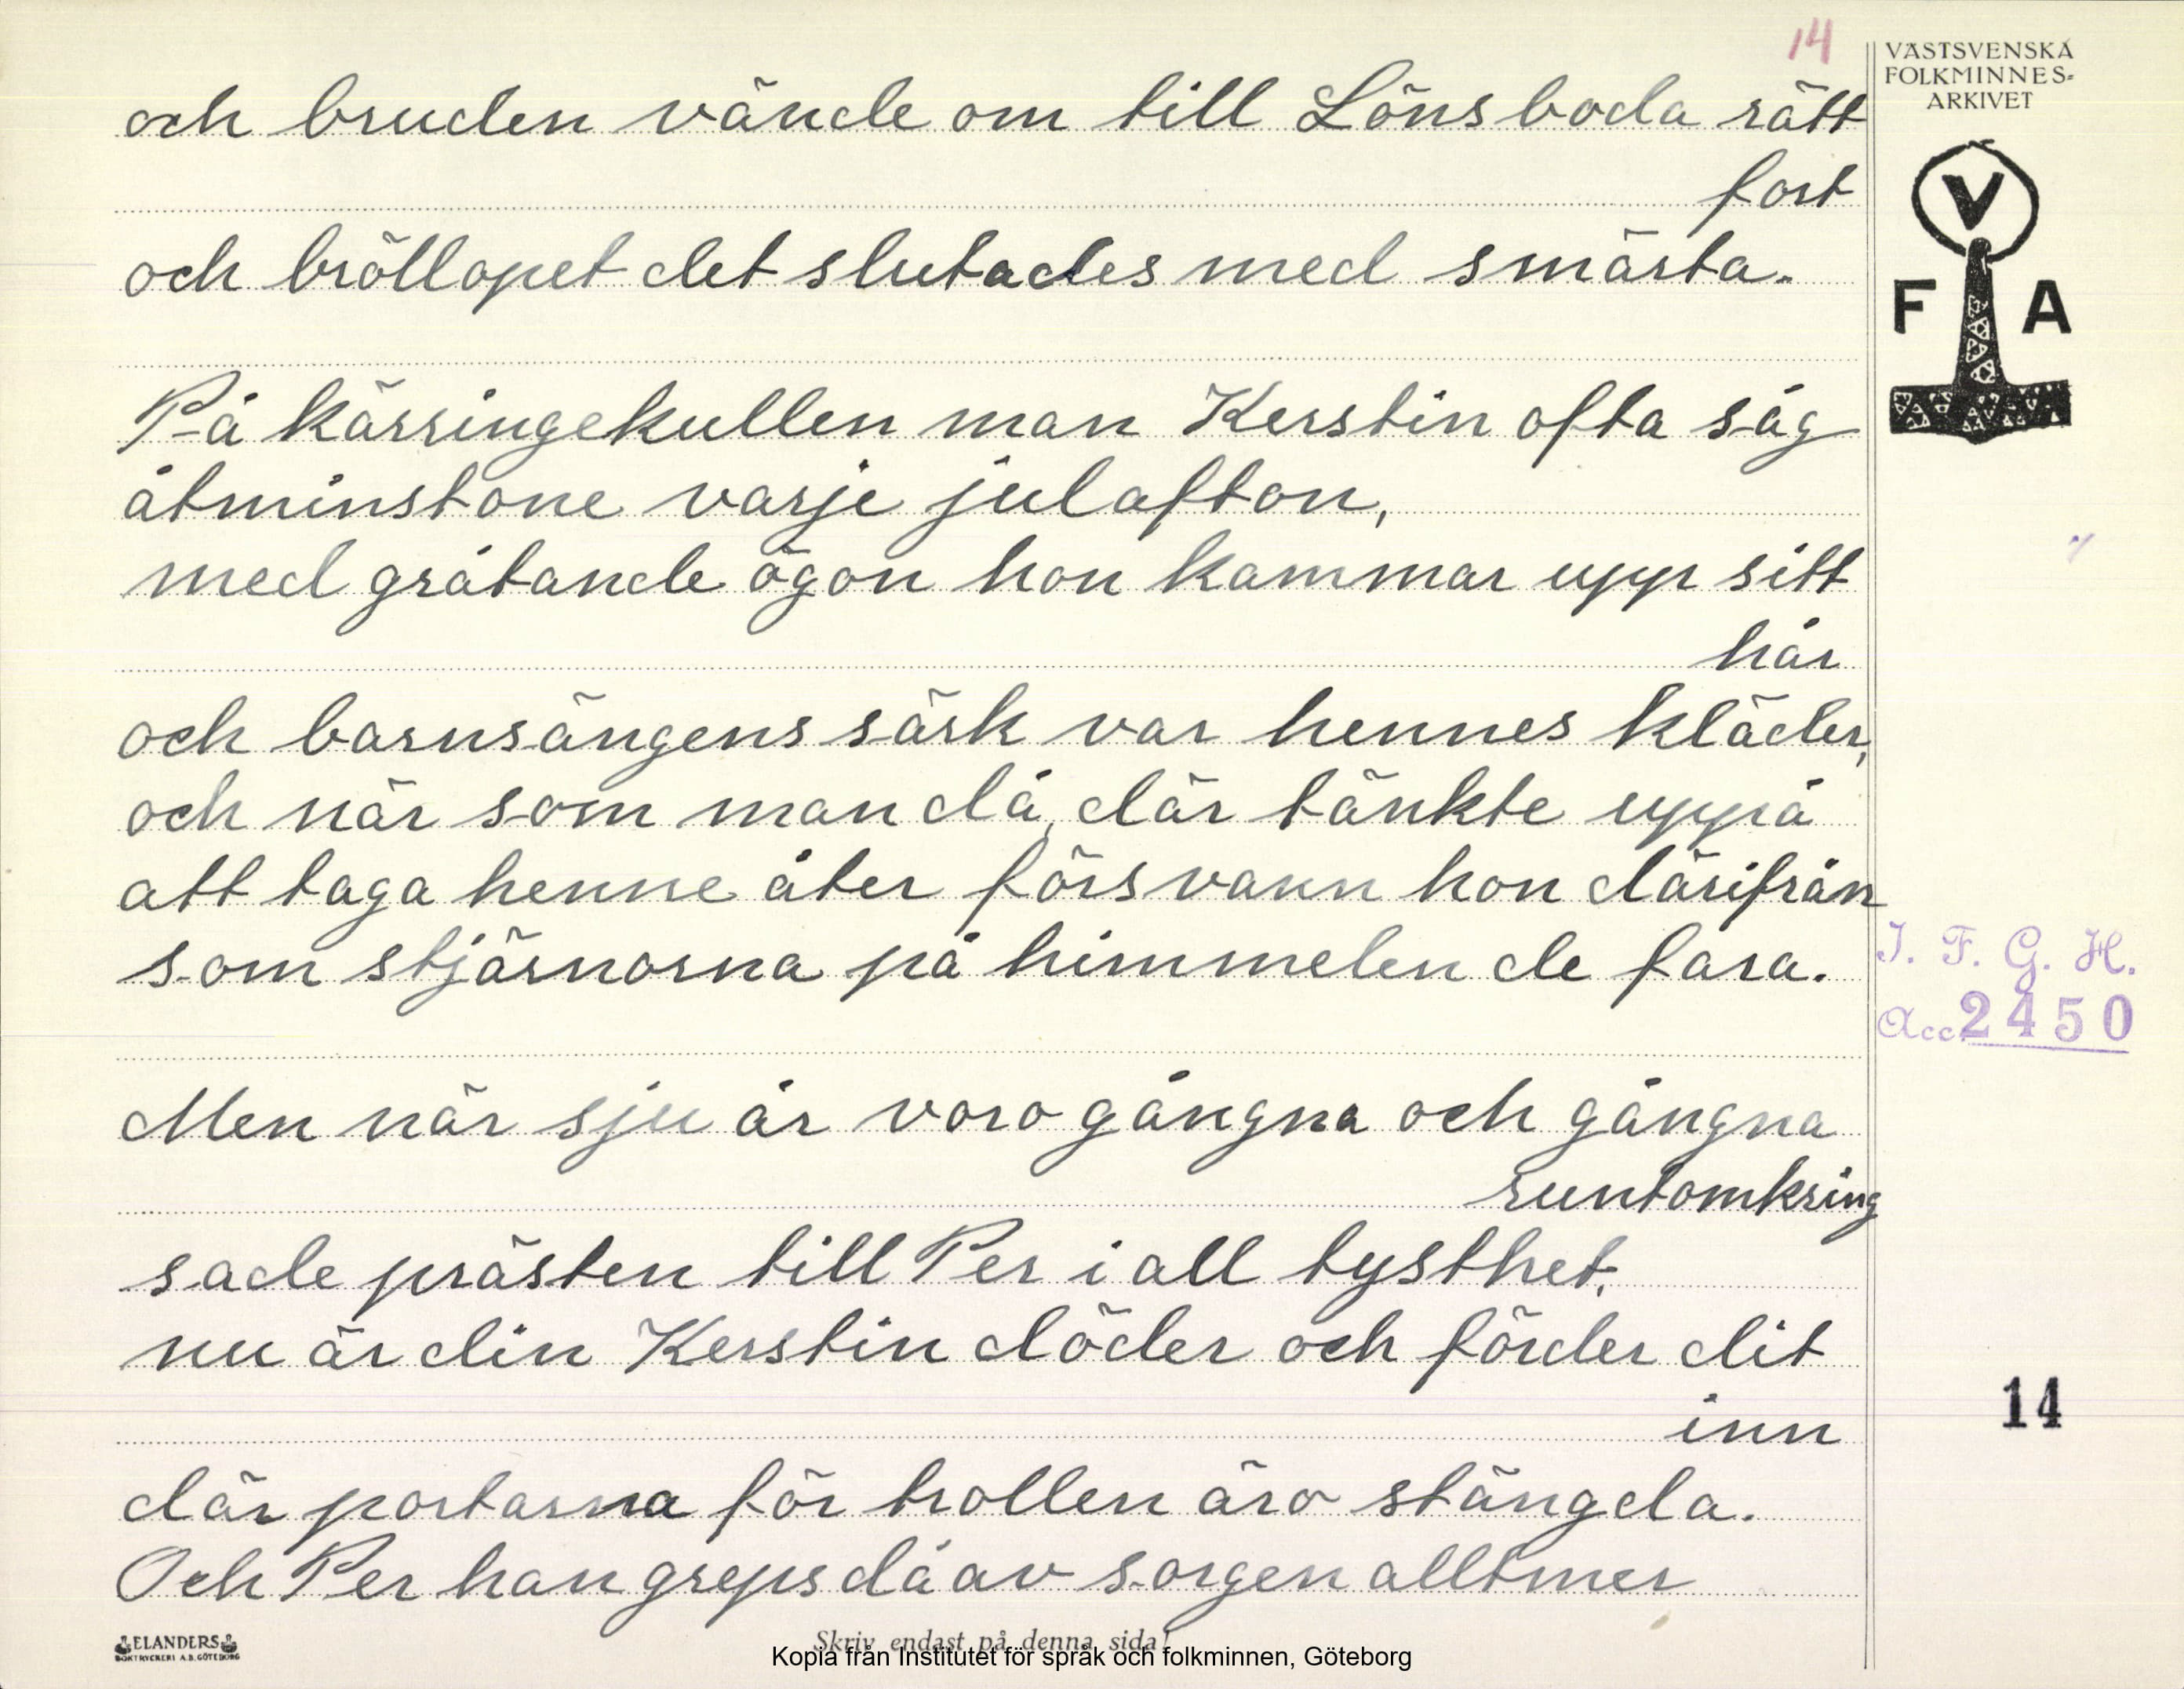 14
VÄSTSVENSKA
FOLKMINNES-
ARKIVET
V
F A
och bruden vände om till Lönsboda rätt
fort
och bröllopet det slutades med smärta.
På kärringekullen man Kerstin ofta såg
åtminstone varje julafton,
med gråtande ögon hon kammar upp sitt
hår
och barnsängens särk var hennes kläder,
och när som man då, där tänkte uppå
att taga henne åter försvann hon därifrån
som stjärnorna på himmelen de fara.
I. F. G. H.
Acc. 2450
Men när sju år voro gångna och gångna
runtomkring
sade prästen till Per i all tysthet,
nu är din Kerstin döder och förder dit
inn
14
där portarna för trollen äro stängda.
Och Per han greps då av sorgen alltmer
ELANDERS
BOKTRYCKERI A.B. GÖTEBORG
Skriv endast på denna sida!
Kopia från Institutet för språk och folkminnen, Göteborg